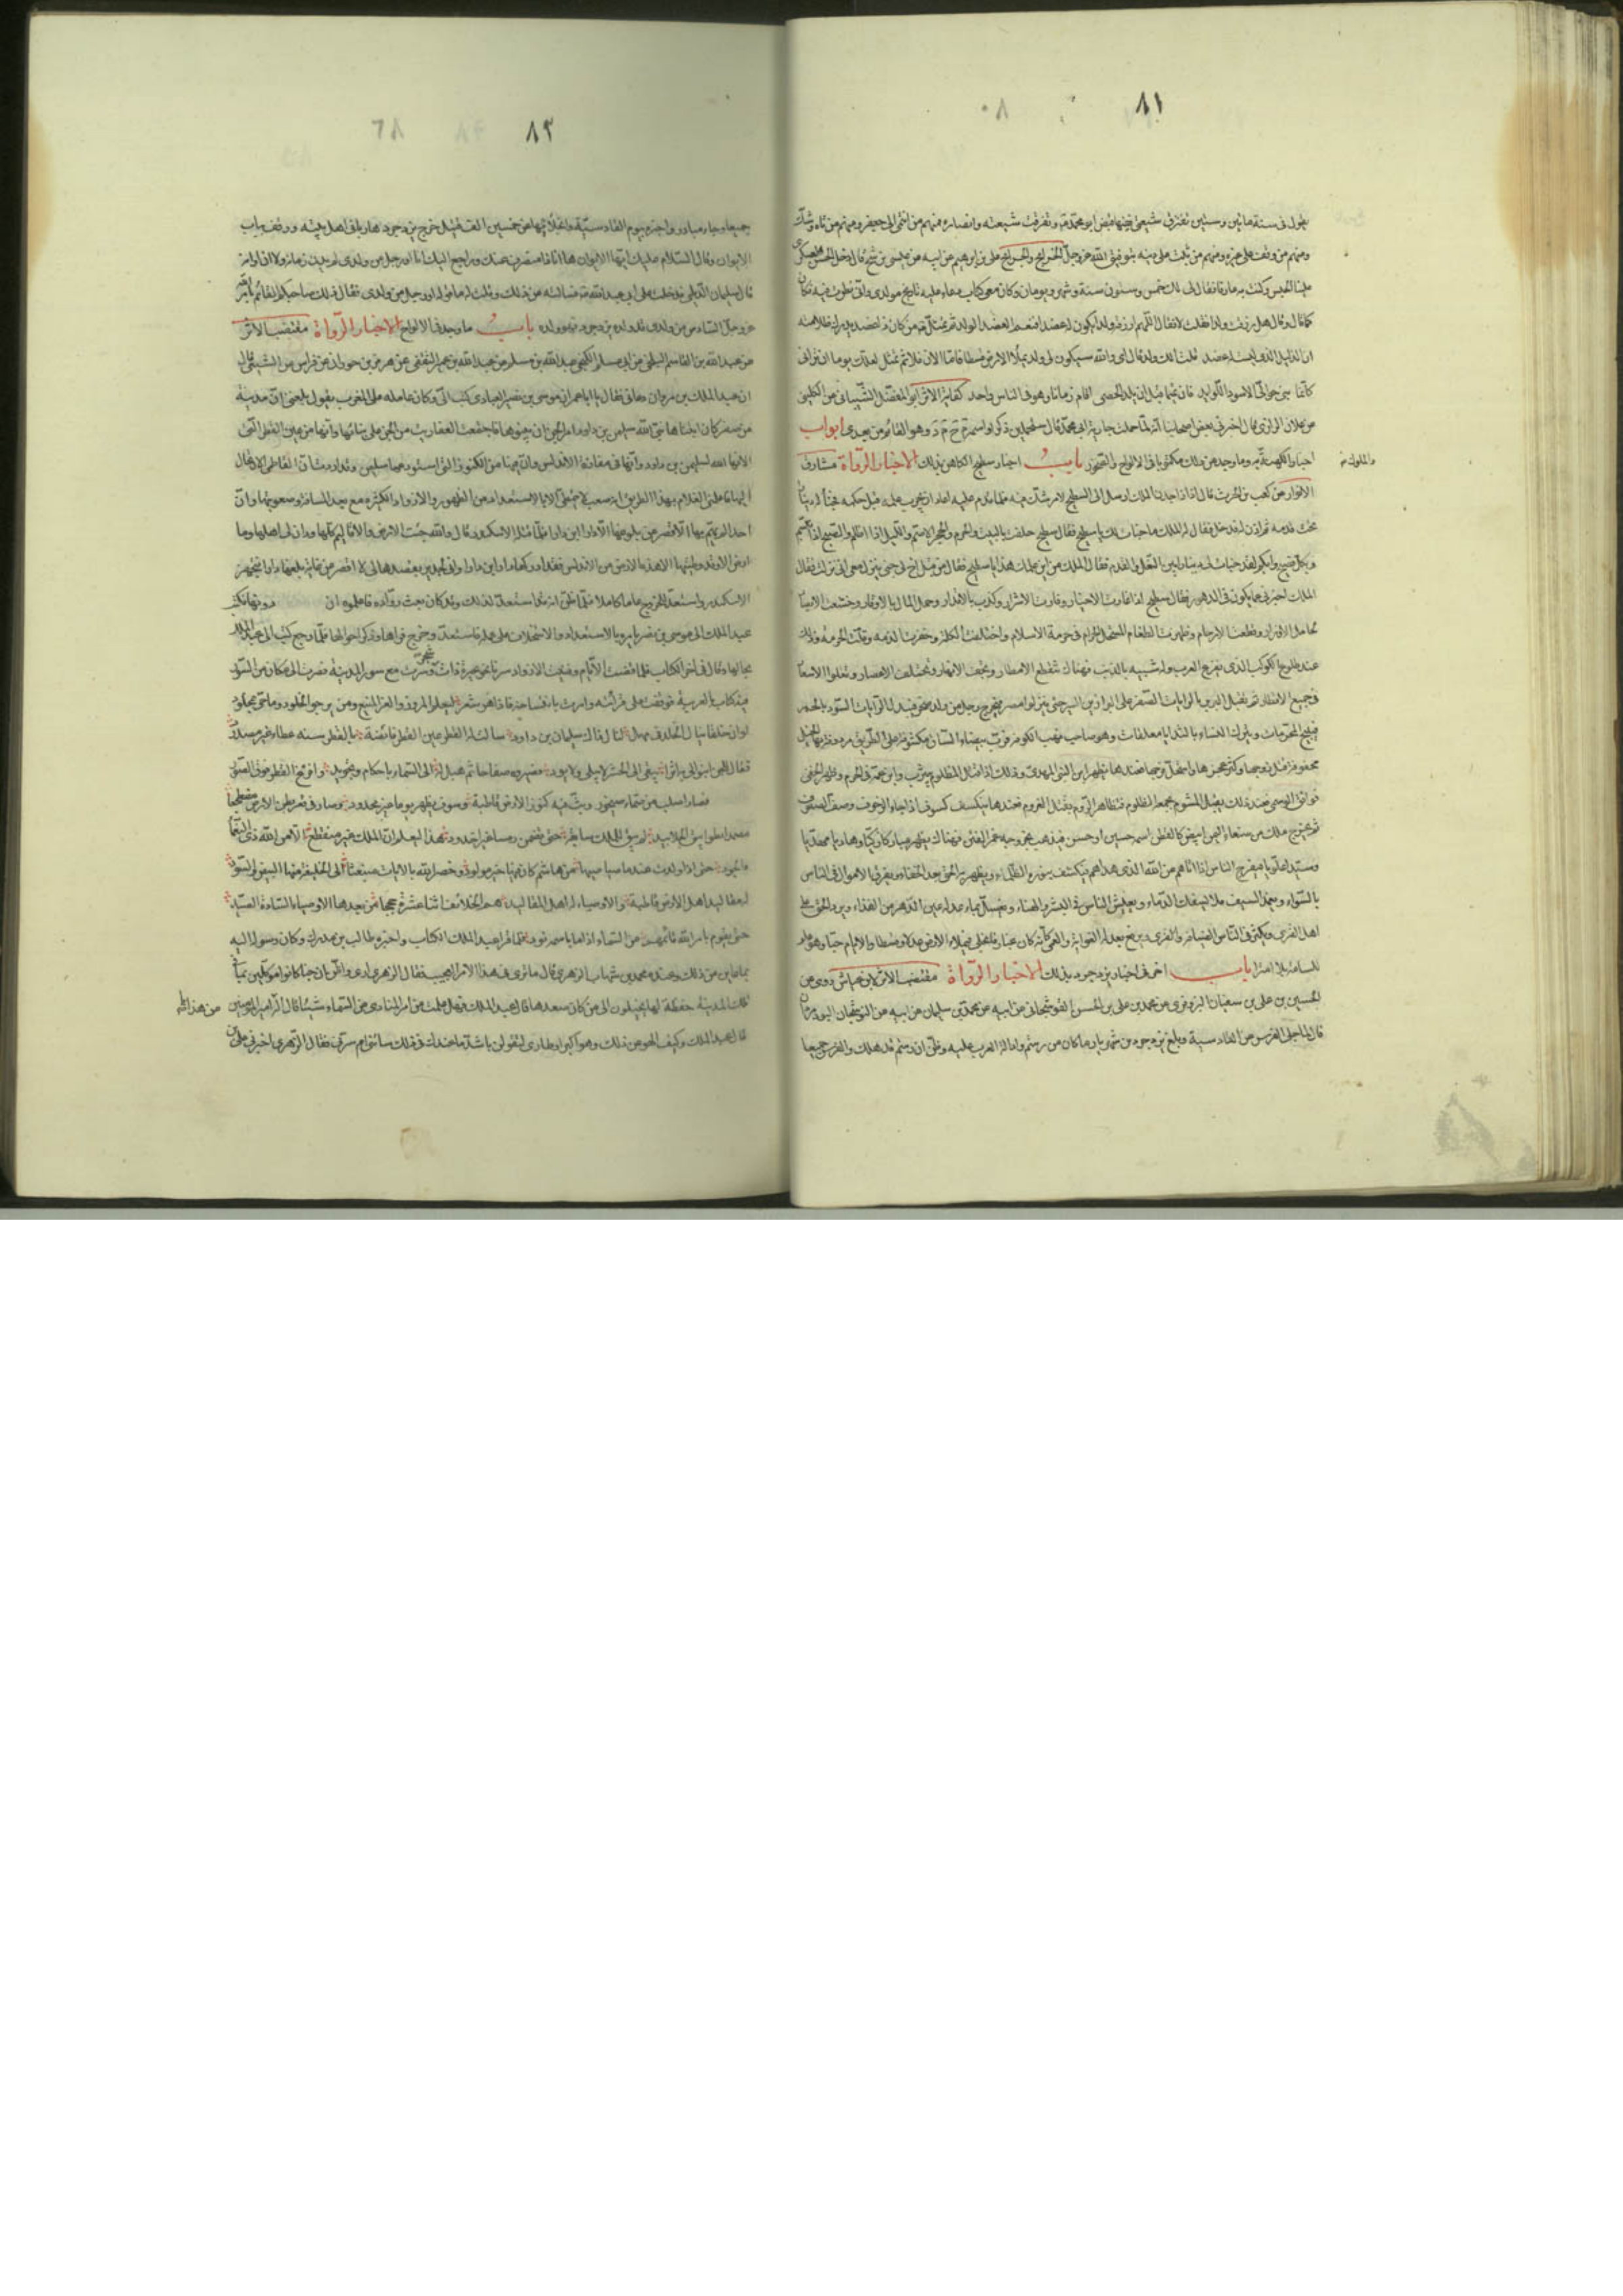 ٨١
يقول في سنة مائتين وستين تفترق شيعتي ففيها قبض ابو محمد وتفرقت شيعته وانصاره فمنهم من انتمى الى جعفر ومنهم من تاه وشك
ومنهم من وقف على تحيره ومنهم من ثبت على دينه بتوفيق الله عز وجل الخرايج والجرايح على بن ابراهيم عن ابيه عن عيسى بن شج قال دخل الحسن العسكرى
علينا الحبس وكنت به عارفا فقال لى لك خمس وستون سنة وشهر ويومان وكان معى كتاب دعاء عليه تاريخ مولدى وانى نظرت فيه فكان
كما قال وقال هل رزقت ولدا فقلت لا فقال اللهم ارزقه ولدا يكون له عضدا فنعم العضد الولد ثم تمثل من كان ذا عضد يدرك ظلامته
ان الذليل الذى ليست له عضد قلت الك ولد قال اى والله سيكون لى ولد يملأ الارض قسطا فاما الان فلا ثم تمثل لعلك يوما ان ترانى
كانما بنى حوالى الاسود اللوابد فان تميما قبل ان يلد الحصى اقام زمانا وهو فى الناس واحد كفاية الاثر ابو المفضل الشيبانى عن الكلينى
عن علان الرازى قال اخبرنى بعض اصحابنا انه لما حملت جارية ابى محمد قال ستحملين ذكرا واسمه م ح م د وهو القائم من بعدى ابواب
اخبار الكهنة وما وجد من ذلك مكتوبا فى الالواح والصخور باب اخبار سطيح الكاهن بذلك الاخبار الرواة مشارق
والملوك
الانوار عن كعب بن الحرث قال ان ذا جدن الملك ارسل الى السطيح لامر شك فيه فلما قدم عليه اراد ان يجرب علمه قبل حكمه فخبأ له دينارا
تحت قدمه ثم اذن له فدخل فقال له الملك ما خبأت لك يا سطيح فقال سطيح حلفت بالبيت والحرم والحجر الاصم والليل اذا اظلم والصبح اذا تبسم
وبكل فصيح وابكم لقد خبأت لى دينارا بين النعل والقدم فقال الملك من اين علمك هذا يا سطيح فقال من قبل اخ لى جنى ينزل معى انى نزلت فقال
الملك اخبرنى عما يكون فى الدهور فقال سطيح اذا غارت الاخيار وقادت الاشرار وكذب بالاقدار وحمل المال بالاوقار وخشعت الابصار
لحامل الاوزار وقطعت الارحام وظهرت الطغام المستحلى الحرام فى حرمة الاسلام واختلفت الكلمة وخفرت الذمة وقلت الحرمة وذلك
عند طلوع الكوكب الذى يفزع العرب وله شبيه بالذنب فهناك تنقطع الامطار وتجف الانهار وتختلف الاعصار وتغلوا الاسعار
فى جميع الاقطار ثم تقبل البربر بالرايات الصفر على البراذين السبر حتى ينزلوا مصر فيخرج رجل من ولد صخر فيبدل الرايات السود بالحمر
فيبيح المحرمات ويترك النساء بالثدايا معلقات وهو صاحب نهب الكوفة فرب بيضاء الساق مكشوفة على الطريق مردوفة بها الخيل
محفوفة قتل زوجها وكثر عجزها واستحل فرجها فعندها يظهر ابن النبى المهدى وذلك اذا قتل المظلوم بيثرب وابن عمه فى الحرم وظهر الخفى
فوافق الوسمى فعند ذلك يقبل المشوم بجمعه الظلوم فتظاهر الروم بقتل القروم فعندها ينكسف كسوف اذا جاء الزحوف وصف الصفوف
ثم يخرج ملك من صنعاء اليمن ابيض كالقطن اسمه حسين او حسن فيذهب بخروجه غمر الفتن فهناك يظهر مباركا زكيا وهاديا مهديا
وسيدا علويا فيفرج الناس اذا اتاهم من الله الذى هداهم فيكشف بنوره الظلماء ويظهر به الحق بعد الخفاء ويفرق الاموال فى الناس
بالسواء ويغمد السيف فلا يسفك الدماء ويعيش الناس فى البشر والهناء ويغسل بماء عدله عين الدهر من القذاء ويرد الحق على
اهل القرى ويكثر فى الناس الضيافة والقرى ويرفع بعدله الغواية والعمى كانه كان غبار فانجلى فيملا الارض عدلا وقسطا والايام حباء وهو علم
للساعة بلا امتراء باب اخر فى اخبار يزدجرد بذلك الاخبار الرواة مقتضب الاثر لابن عياش روى عن
الحسين بن على بن سفيان البزوفرى عن محمد بن على بن الحسن القوشجانى عن ابيه عن محمد بن سليمان عن ابيه عن النوشجان
قال لما جلى الفرس عن القادسية وبلغ يزدجرد بن شهريار ما كان من رستم وادالة العرب عليه وظن ان رستم قد هلك والفرس جميعا
٨٢
جميعا وجاء مبادر واخبره بيوم القادسية وانجلائها عن خمسين الف قتيل خرج يزدجرد هاربا فى اهل بيته ووقف بباب
الايوان وقال السلام عليك ايها الايوان ها انا ذا منصرف عنك وراجع اليك انا او رجل من ولدى لم يدن زمانه ولا ان اوانه
قال سليمان الديلمى فدخلت على ابى عبد الله فسالته عن ذلك وقلت له ما قوله او رجل من ولدى فقال ذلك صاحبكم القائم بامر الله
عز وجل السادس من ولدى قد ولده يزدجرد فهو ولده باب ما وجد فى الالواح الاخبار الرواة مقتضب الاثر
عن عبد الله بن القاسم البلخى عن ابى مسلم الكجى عبد الله بن مسلم عن عبد الله بن عمير الثقفى عن هرمز بن حوران عن فراس عن الشعبى قال
ان عبد الملك بن مروان دعانى فقال يا ابا عمرو ان موسى بن نصير العبدى كتب الى وكان عامله على المغرب يقول بلغنى ان مدينة
من صفر كان ابتناها نبى الله سليمن بن داود امر الجن ان يبنوها فاجتمعت العفاريت من الجن على بنائها وانها من عين القطر التى
الانها الله لسليمن بن داود وانها فى مفازة الاندلس وان فيها من الكنوز التى استودعها سليمن وقد اردت ان اتعاطى الارتحال
اليها فاعلمنى العلام بهذا الطريق انه صعب لا يتمطى الا بالاستعداد من الظهور والازواد الكثيرة مع بعد المسافة وصعوبتها وان
احدا لم يهتم بها الا قصر عن بلوغها الا دارا بن دارا فلما قتله الاسكندر قال والله لقد جبت الارض والاقاليم كلها ودان لى اهلها وما
ارض الا وقد وطئتها الا هذه الارض من الاندلس فقد ادركها دارا بن دارا وانى لجدير بقصدها كى لا اقصر عن غاية بلغها دارا فتجهز
الاسكندر واستعد للخروج عاما كاملا فلما ظن انه قد استعد لذلك وقد كان بعث رواده فاعلموه ان دونها
عبد الملك الى موسى بن نصير يامره بالاستعداد والاستخلاف على عمله فاستعد وخرج فراها وذكر احوالها فلما رجع كتب الى عبد الملك
بحالها وقال فى اخر الكتاب فلما مضت الايام وفنيت الازواد سرنا نحو بحيرة ذات شجر وسرت مع سور المدينة فصرت الى مكان من السور
فيه كتاب بالعربية فوقفت على قرائته وامرت بانتساخه فاذا هو شعر ليعلم المرء ذو العز المنيع ومن يرجو الخلود وما حى بمخلود
لو ان خلقا ينال الخلد فى مهل لنال ذاك سليمان بن داود سالت له القطر عين القطر فائضة بالقطر سنه عطاء غير مصدود
فقال للجن ابنوا لى به اثرا يبقى الى الحشر لا يبلى ولا يودى فصيروه صفاحا ثم هيل له الى السماء باحكام وتجويد وافرغ القطر فوق السور
فصار اصلب من صماء صيخود وبث فيه كنوز الارض قاطبة وسوف يظهر يوما غير محدود وصار فى قعر بطن الارض مضطجعا
مصمدا بطوابيق الجلاميد لم يبق من بعده للملك سابقة حتى تضمن رمسا غير اخدود هذا ليعلم ان الملك منقطع الا من الله ذى النعماء
والجود حتى اذا ولدت عدنان صاحبها من هاشم كان منها خير مولود وخصه الله بالايات منبعثا الى الخليقة منها البيض والسود
له مقاليد اهل الارض قاطبة والاوصياء له اهل المقاليد هم الخلائف اثنا عشرة حججا من بعدها الاوصياء السادة الصيد
حتى يقوم بامر الله قائمهم من السماء اذا ما باسمه نودى فلما قرا عبد الملك الكتاب واخبره طالب بن مدرك وكان رسوله اليه
بما عاين من ذلك وعنده محمد بن شهاب الزهرى قال ما ترى فى هذا الامر العجيب فقال الزهرى ارى واظن ان جنا كانوا موكلين بما
فى تلك المدينة حفظة لها يخيلون الى من كان صعدها قال عبد الملك فهل علمت من امر المنادى من السماء شيئا قال اله عن هذا يا امير المومنين
قال عبد الملك وكيف الهو عن ذلك وهو اكبر اوطارى لتقولن باشد ما عندك فى ذلك ساءنى ام سرنى فقال الزهرى اخبرنى على بن